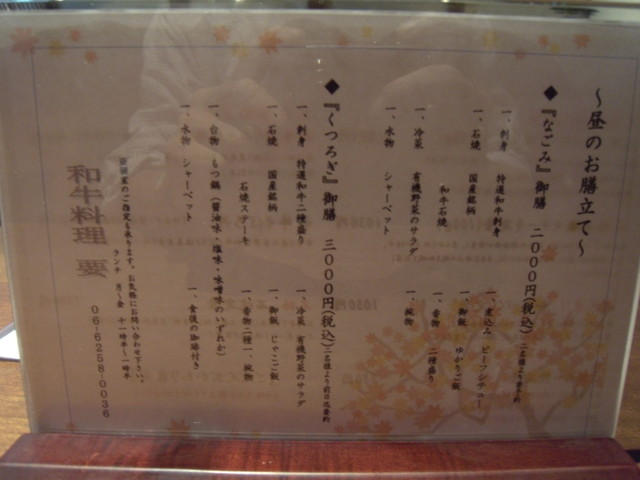 ～昼のお膳立て～
◆『なごみ』御膳 二〇〇〇円(税込)二名様より要予約
一、刺身 特選和牛刺身
一、石焼 国産銘柄
和牛石焼
一、冷菜 有機野菜のサラダ
一、水物 シャーベット
一、煮込み ビーフシチュー
一、御飯 ゆかりご飯
一、香物 二種盛り
一、椀物
◆『くつろぎ』御膳 三〇〇〇円(税込)二名様より前日迄要約
一、刺身 特選和牛二種盛り
一、石焼 国産銘柄
石焼ステーキ
一、台物 もつ鍋(醤油味・塩味・味噌味のいずれか)
一、水物 シャーベット
一、冷菜 有機野菜のサラダ
一、御飯 じゃこご飯
一、香物二種 一、椀物
一、食後の珈琲付き
のご指定も承ります。お気軽にお問い合わせ下さい。
ランチ 月～金 十一時半～一時半
和牛料理 要
06-6258-0036